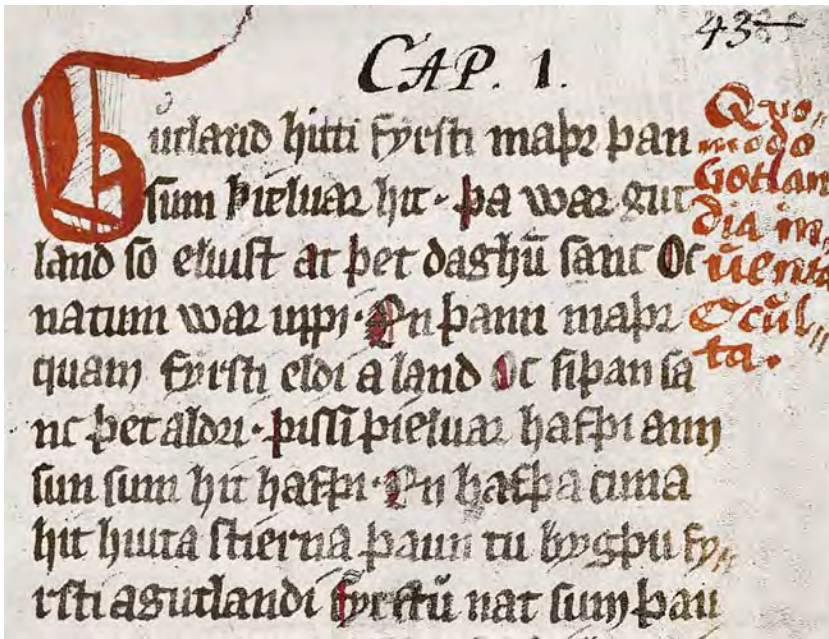 43
CAP. 1.
Gutland hitti fyrsti maþr þan
sum þieluar hit · þa war gut
land so eluist at þet daghū sanc Oc
natum war uppi · En þann maþr
quam fyrsti eldi a land Oc siþan sa
nc þet aldri · þissi þieluar hafþi ann
sun sum hit hafþi · En hafþa cuna
hit huita stierna þaun tu bygþu fy„
rsti a gutlandi fyrstū nat sum þau
Quo„
modo
Gotlan
dia in„
ūenta
Occūl„
ta.